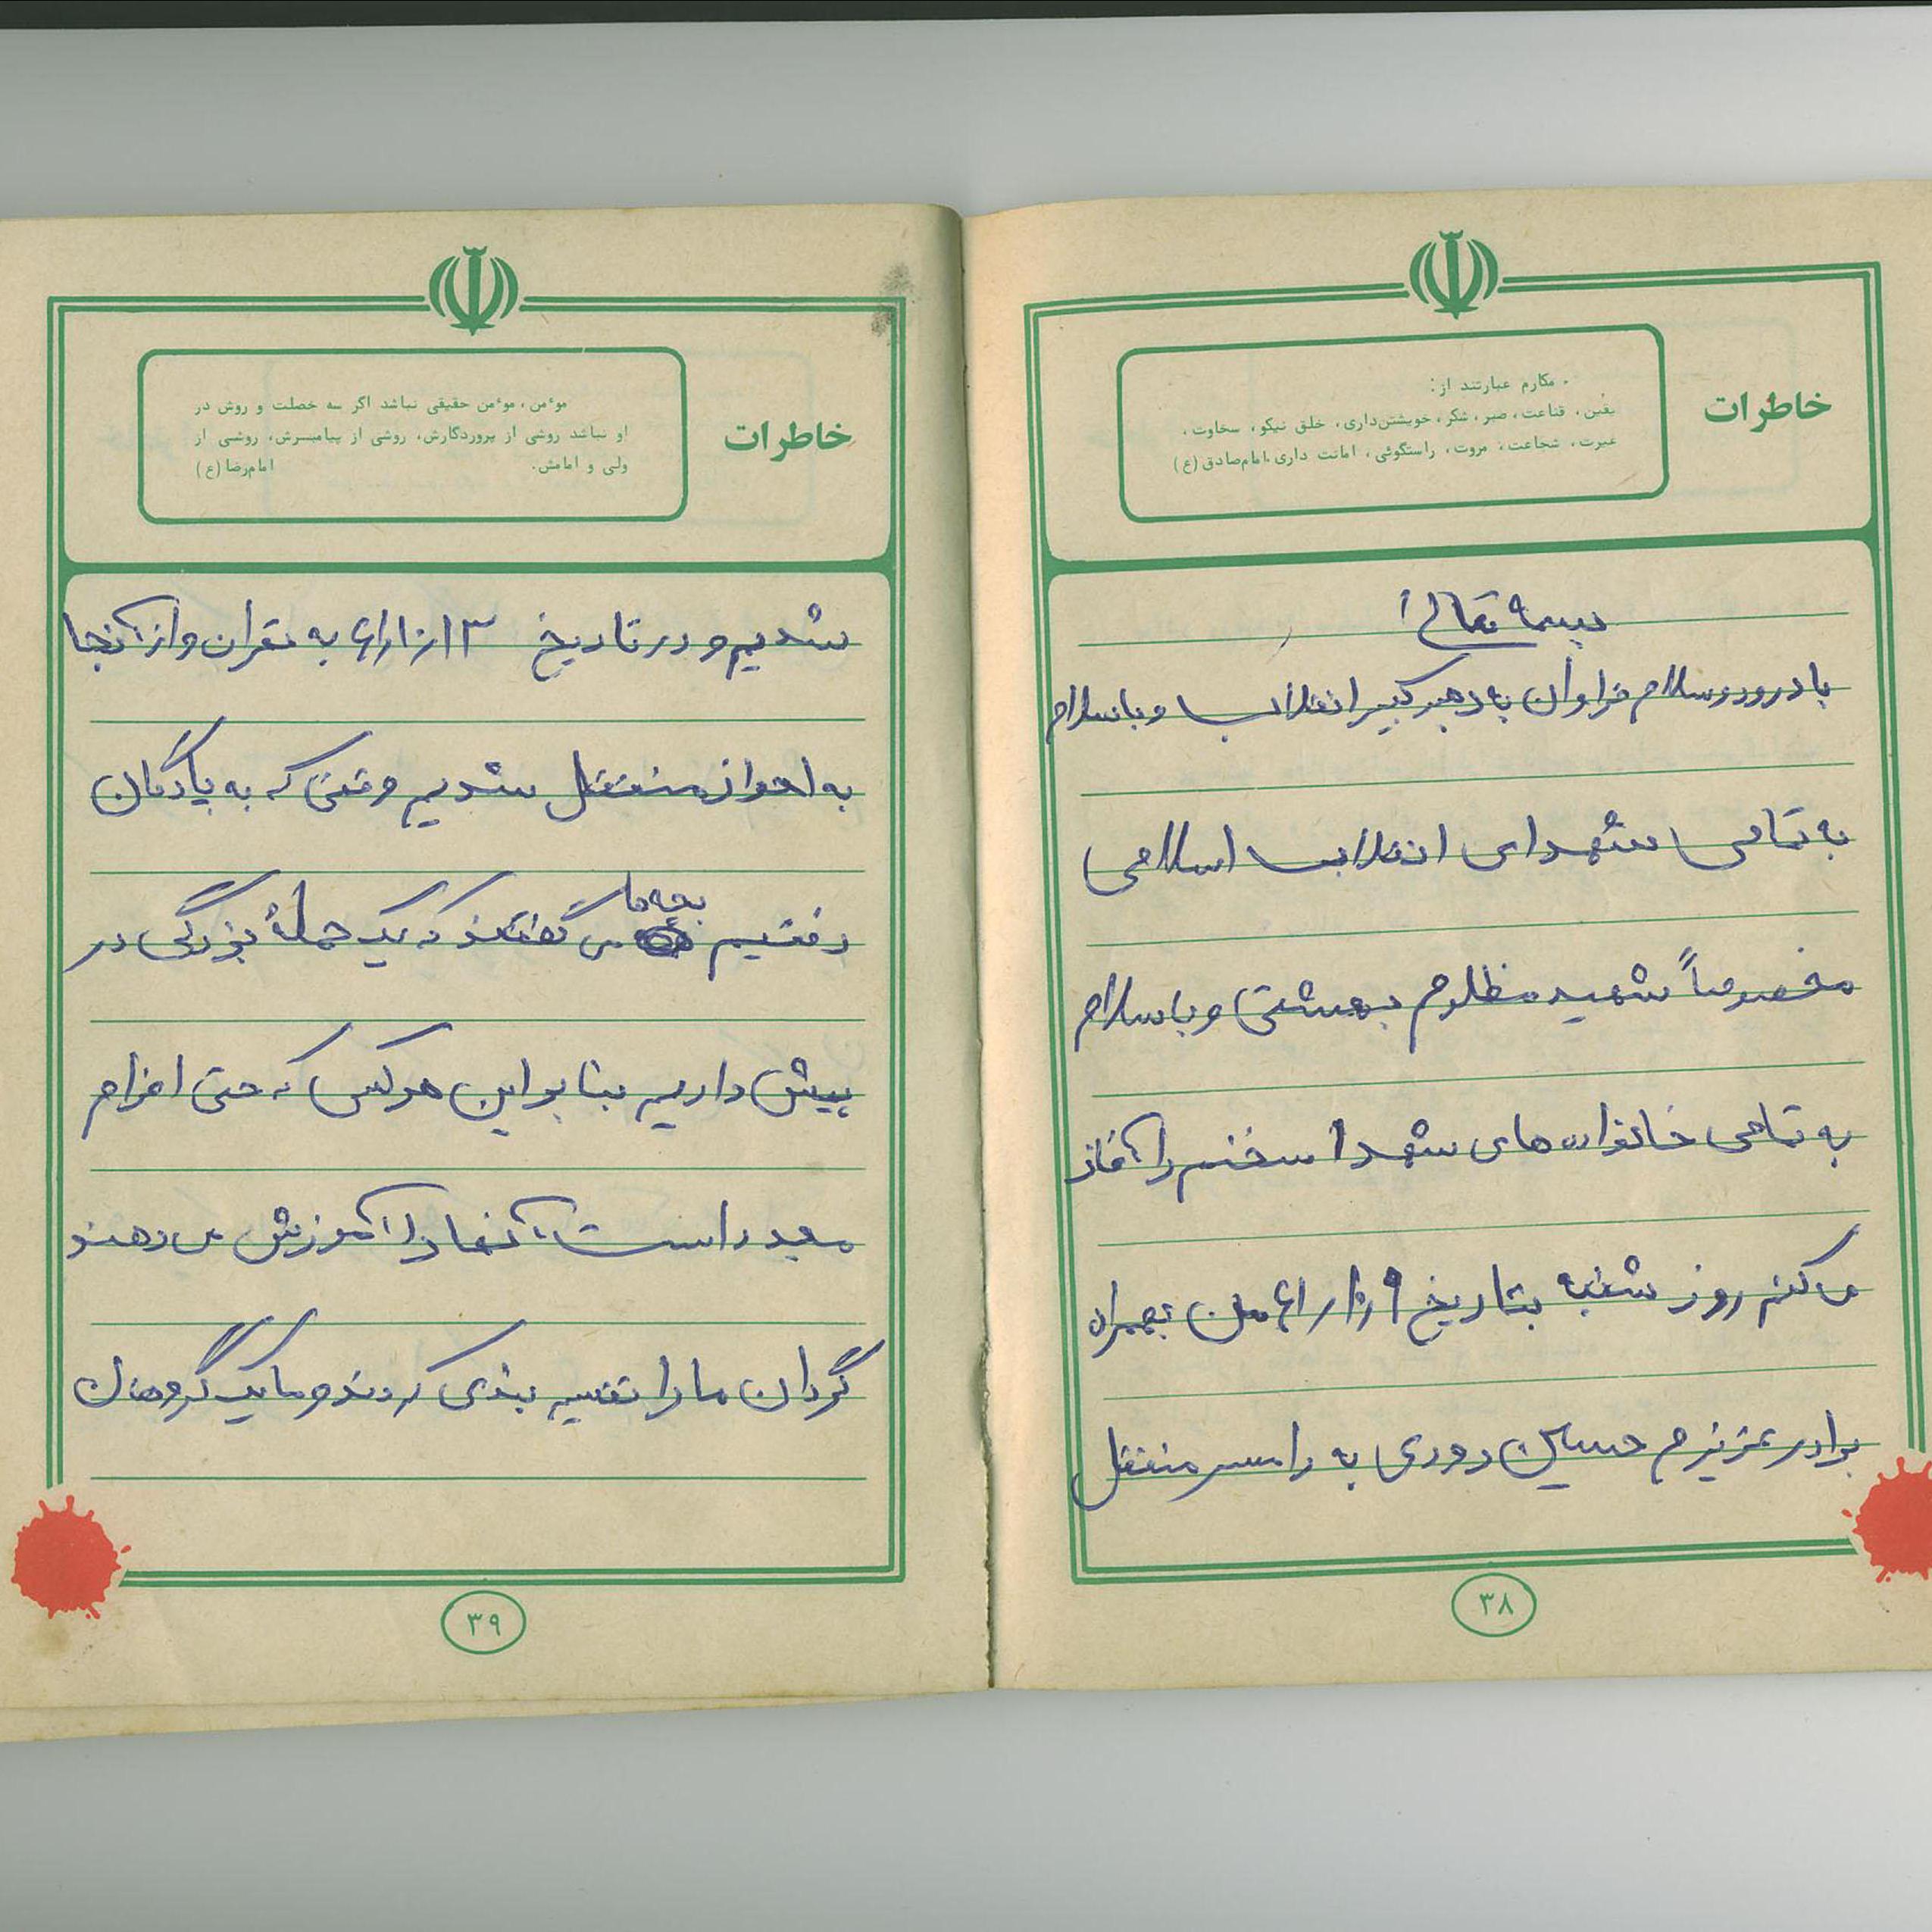 خاطرات
۰ مکارم عبارتند از:
یقین، قناعت، صبر، شکر، خویشتن‌داری، خلق نیکو، سخاوت،
غیرت، شجاعت، مروت، راستگوئی، امانت داری.امام‌صادق(ع)
بسمه تعالی
با درود و سلام فراوان به رهبر کبیر انقلاب و با سلام
به تمامی شهدای انقلاب اسلامی
مخصوصاً شهید مظلوم بهشتی و با سلام
به تمامی خانواده‌های شهدا سخنم را آغاز
می کنم روز شنبه بتاریخ من بهمراه
برادر عزیزم حسین دوری به رامسر منتقل
۳۸
خاطرات
موءمن، موءمن حقیقی نباشد اگر سه خصلت و روش در
او نباشد روشی از پروردگارش، روشی از پیامبرش، روشی از
ولی و امامش. امام‌رضا(ع)
شدیم و در تاریخ به تهران و از آنجا
به اهواز منتقل شدیم وقتی که به پادگان
رفتیم بچه‌ها می گفتند که یک حملهٔ بزرگی در
پیش داریم بنابراین هر کس که حتی اعزام
مجدد است آنها را آموزش می دهند
گردان ما را تقسیم بندی کردند و ما یک گروهان
۳۹